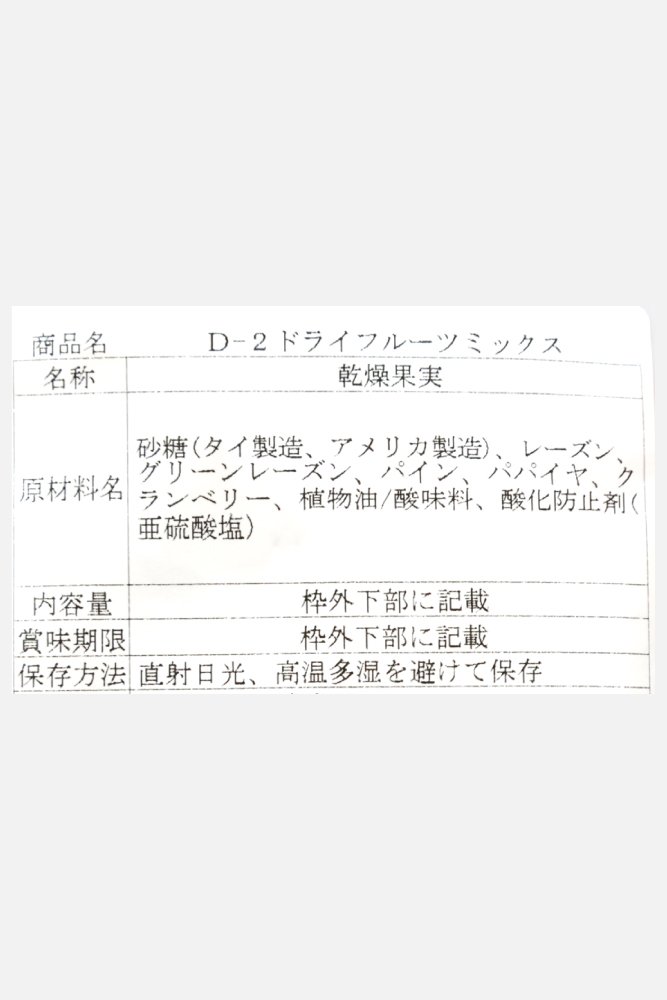 商品名 D-2ドライフルーツミックス
名称 乾燥果実
原材料名 砂糖(タイ製造、アメリカ製造)、レーズン、
グリーンレーズン、パイン、パパイヤ、ク
ランベリー、植物油/酸味料、酸化防止剤(
亜硫酸塩)
内容量 枠外下部に記載
賞味期限 枠外下部に記載
保存方法 直射日光、高温多湿を避けて保存